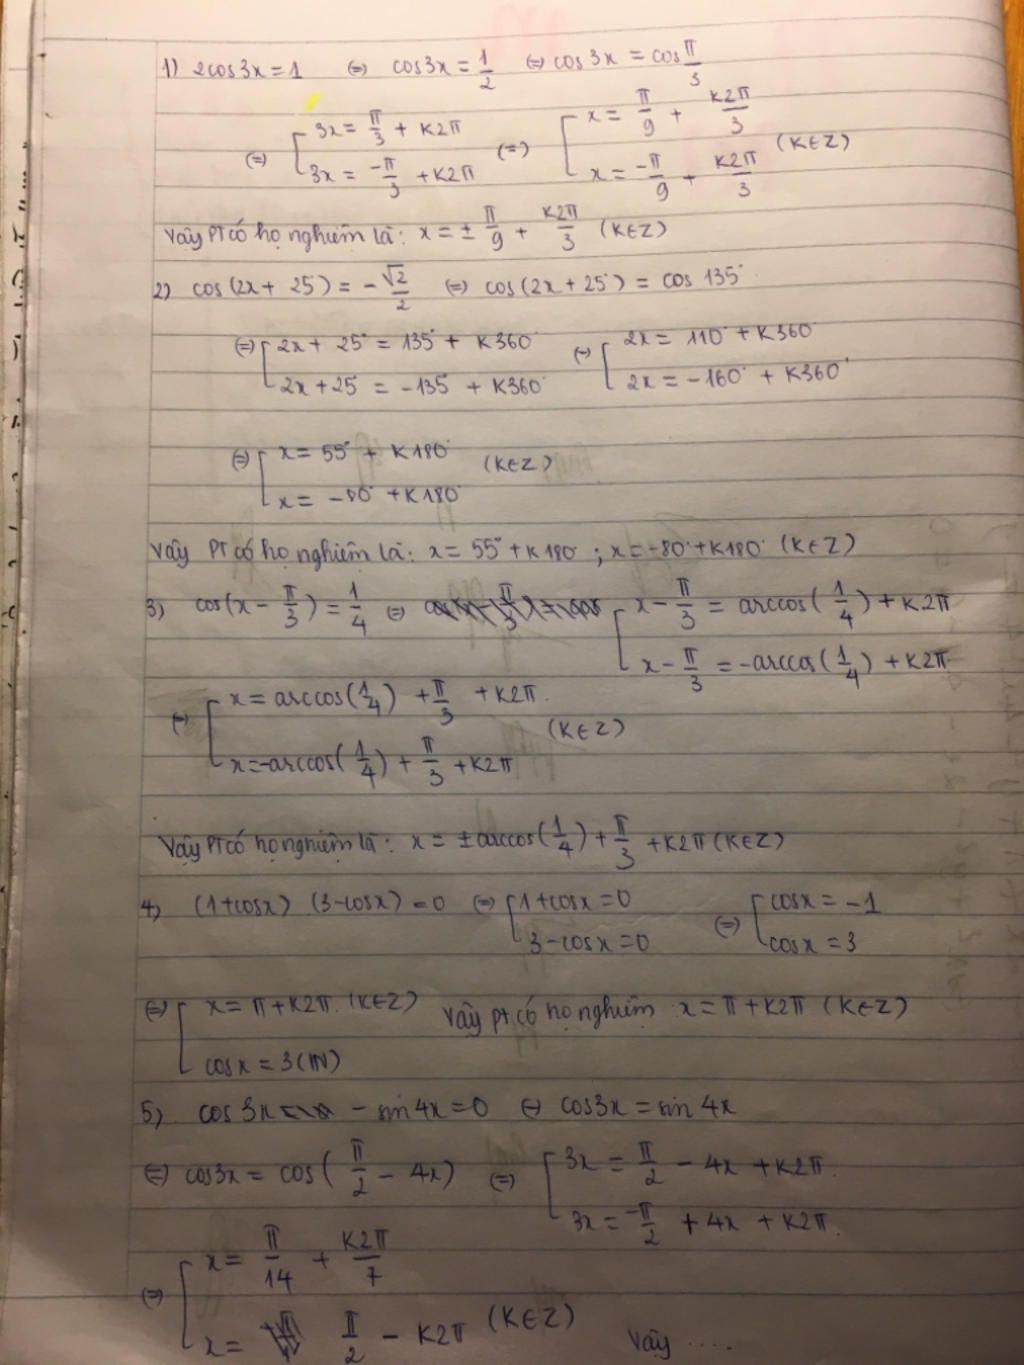 1) 2cos3x = 1 (=) cos3x = 1/2 (=) cos3x = cos π/3
(=) [ 3x = π/3 + K2π (=) [ x = π/9 + K2π/3
3x = -π/3 + K2π x = -π/9 + K2π/3 (K∈Z)
Vậy PT có họ nghiệm là: x = ± π/9 + K2π/3 (K∈Z)
2) cos(2x + 25°) = -√2/2 (=) cos(2x + 25°) = cos 135°
(=) [ 2x + 25° = 135° + K360° (=) [ 2x = 110° + K360°
2x + 25° = -135° + K360° 2x = -160° + K360°
(=) [ x = 55° + K180° (K∈Z)
x = -80° + K180°
Vậy PT có họ nghiệm là: x = 55° + K180° ; x = -80° + K180° (K∈Z)
3) cos(x - π/3) = 1/4 (=) [ x - π/3 = arccos(1/4) + K2π
x - π/3 = -arccos(1/4) + K2π
(=) [ x = arccos(1/4) + π/3 + K2π.
(K∈Z)
x = -arccos(1/4) + π/3 + K2π
Vậy PT có họ nghiệm là: x = ± arccos(1/4) + π/3 + K2π (K∈Z)
4) (1+cosx) (3-cosx) = 0 (=) [ 1+cosx = 0 (=) [ cosx = -1
3-cosx = 0 cosx = 3
(=) [ x = π + K2π. (K∈Z) Vậy PT có họ nghiệm x = π + K2π (K∈Z)
cosx = 3
5) cos3x - sin4x = 0 (=) cos3x = sin4x
(=) cos3x = cos(π/2 - 4x) (=) [ 3x = π/2 - 4x + K2π.
3x = -π/2 + 4x + K2π.
(=) [ x = π/14 + K2π/7
x = π/2 - K2π (K∈Z) Vậy ....